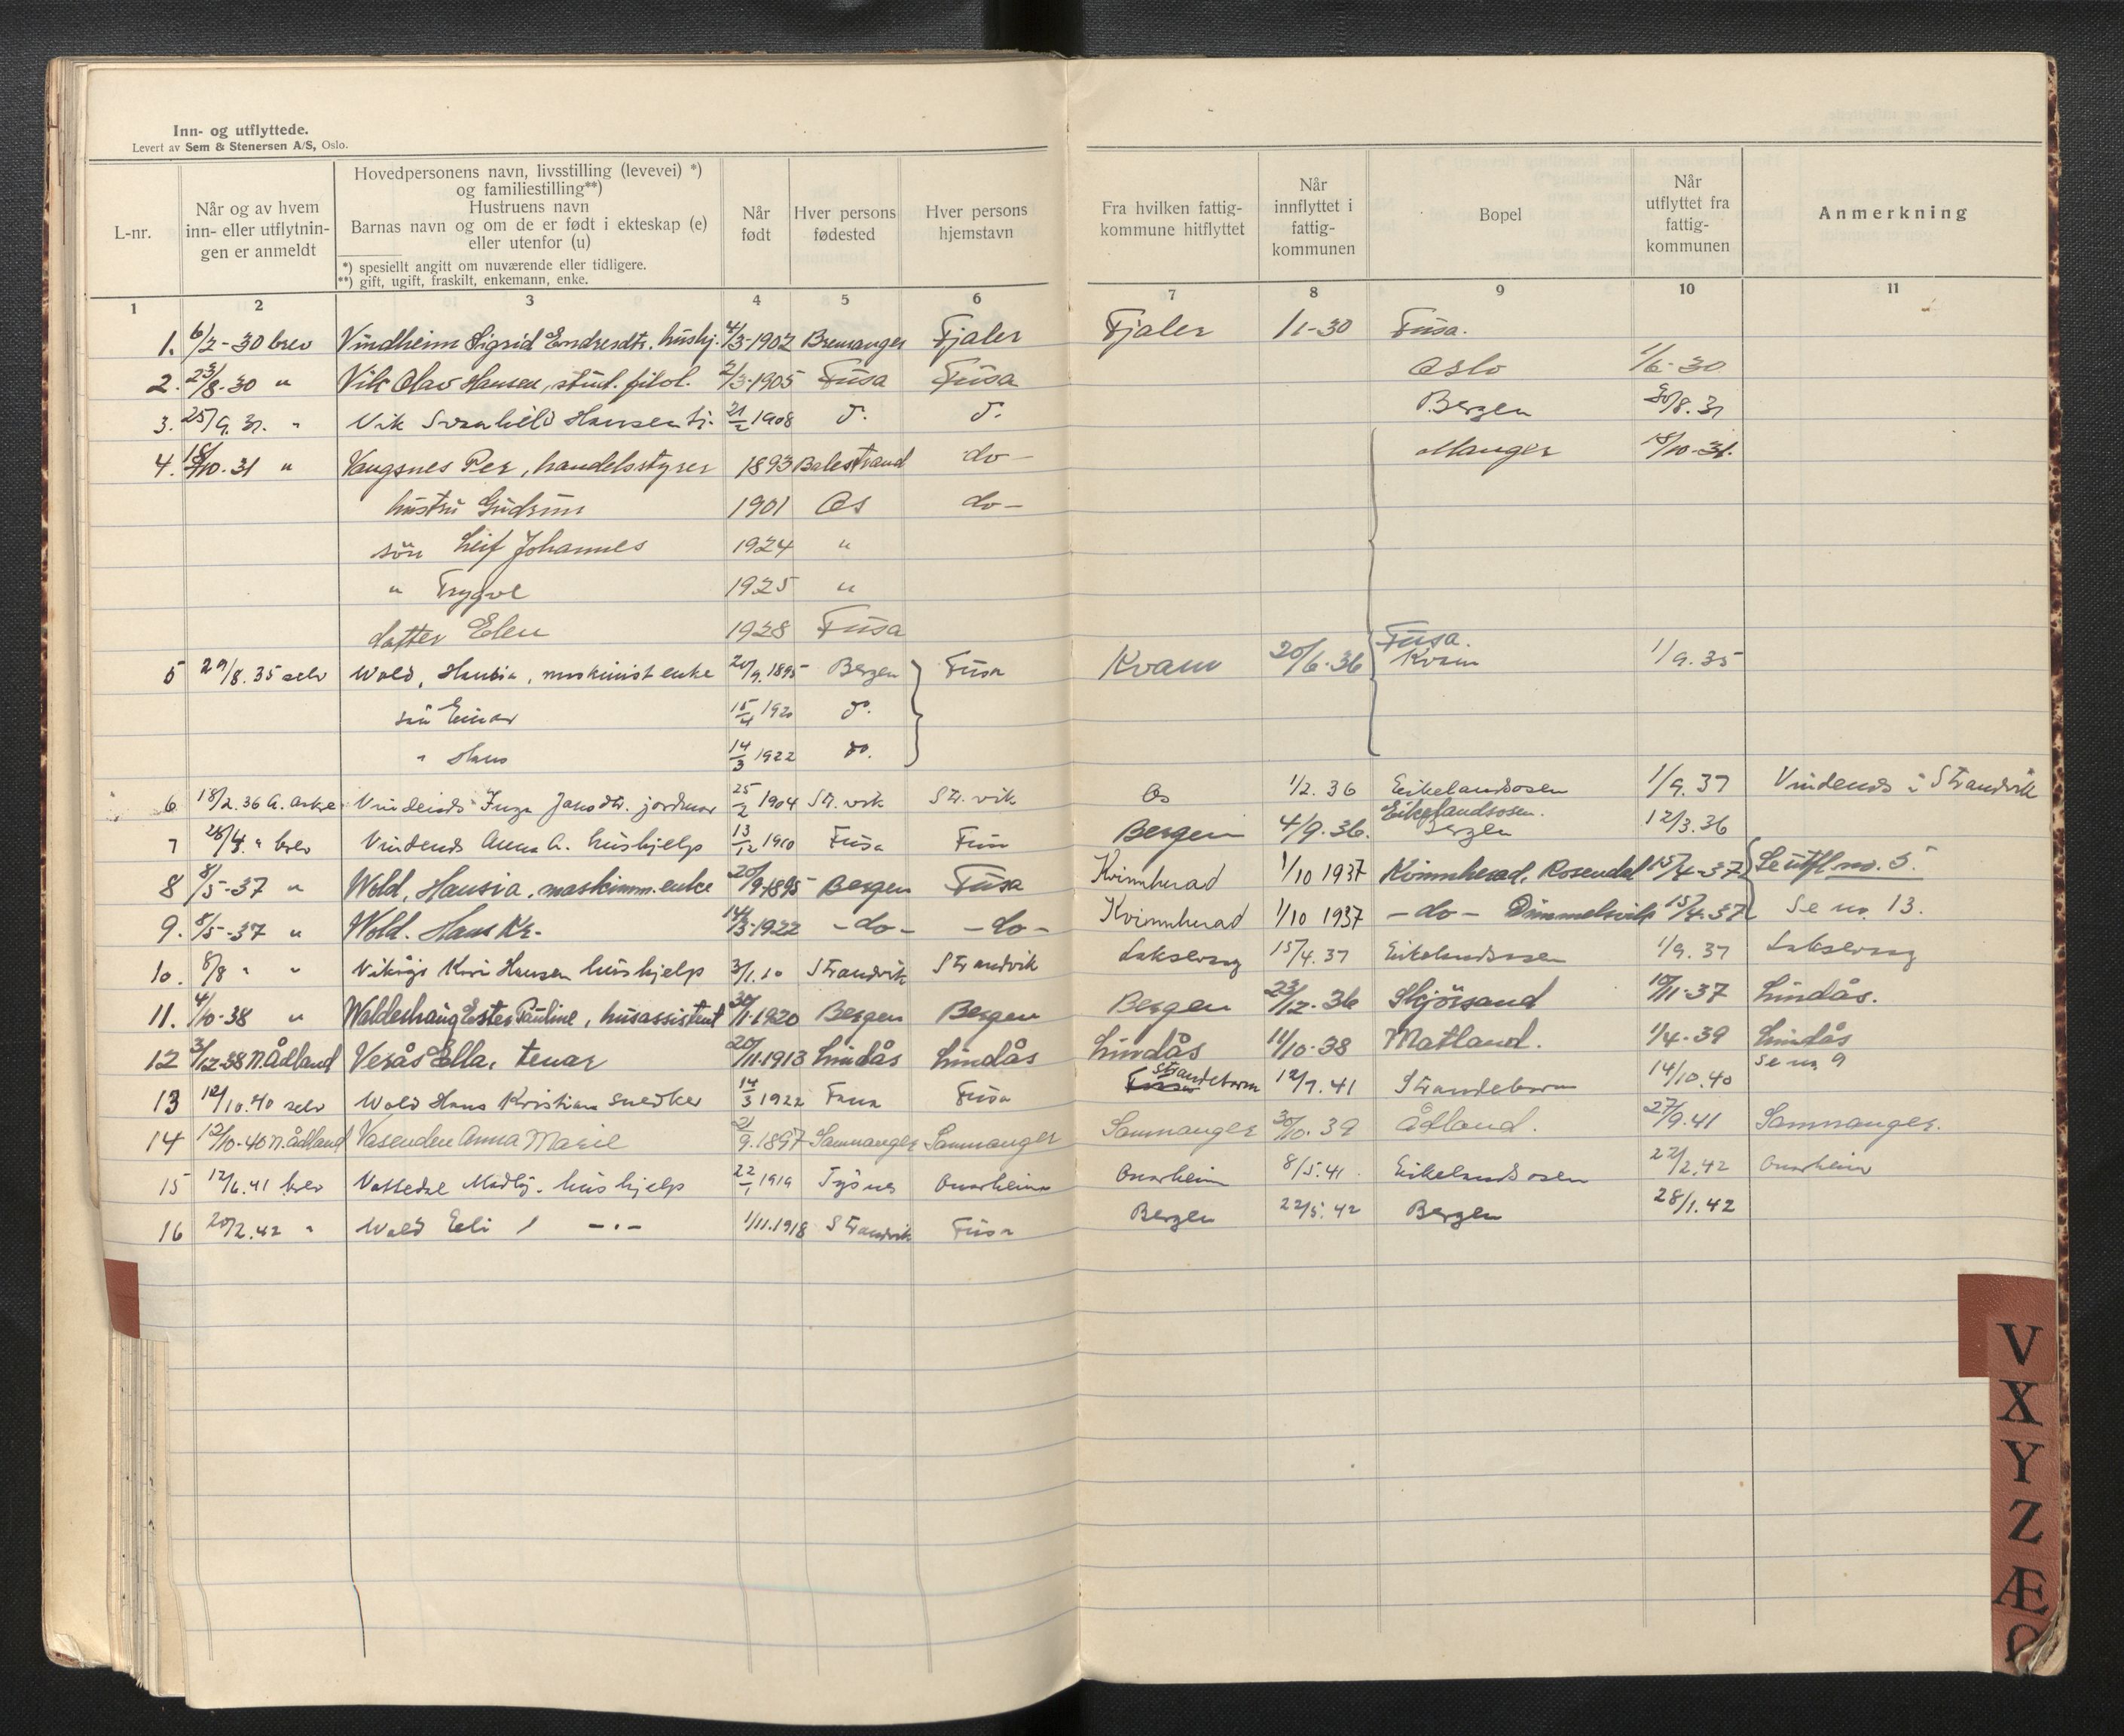 Inn- og utflyttede.
Levert av Sem & Stenersen A/S, Oslo.
L-nr.
Når og av hvem
inn- eller utflytnin-
gen er anmeldt
Hovedpersonens navn, livsstilling (levevei) *)
og familiestilling**)
Hustruens navn
Barnas navn og om de er født i ekteskap (e)
eller utenfor (u)
*) spesiellt angitt om nuværende eller tidligere.
**) gift, ugift, fraskilt, enkemann, enke.
Når
født
Hver persons
fødested
Hver persons
hjemstavn
Fra hvilken fattig-
kommune hitflyttet
Når
innflyttet i
fattig-
kommunen
Bopel
Når
utflyttet fra
fattig-
kommunen
Anmerkning
1 2 3 4 5 6 7 8 9 10 11
1. 6/2-30 brev Vindheim Sigrid Endresdtr. hushj. 4/3-1902 Bremanger Fjaler Fjaler 1/1-30 Fusa.
2. 23/8-30 " Vik Olav Hansen, stud. filol. 2/3-1905 Fusa Fusa Oslo 1/6-30
3. 25/9.31. " Vik Svanhild Hansen 21/2 1908 d. d. Bergen 30/8.31
4. 18/10-31 " Vangsnes Per, handelsstyrer 1893 Balestrand do- Manger 18/10-31.
hustru Gudrun 1901 Os do-
søn Leif Johannes 1924 "
" Trygve 1925 "
datter Elen 1928 Fusa
Fusa.
5 29/8.35 selv Wold, Hansia, maskinist enke 20/9.1895 Bergen Fusa Kvam 20/6-36 Kvam 1/9.35
søn Einar 15/4 1920 do.
" Hans 14/3 1922 do.
6 18/2.36 A. Askel Vindenes Inga Jansdtr. jordmor 25/2 1904 Str.vik Str.vik Os 1/2.36 Eikelandsosen 1/9.37 Vindenes i Strandvik
Eikelandsosen.
7 28/4. " brev Vindenes Anna A. hushjelp 13/12 1910 Fusa Fusa Bergen 4/9.36. Bergen 12/3.36
8 8/5-37 " Wold, Hansia, maskinm. enke 20/9-1895 Bergen Fusa Kvinnherad 1/10 1937 Kvinnherad, Rosendal 15/4-37 Se utfl no. 5.
9. 8/5-37 " Wold. Hans Kr. 14/3-1922 -do- -do- Kvinnherad 1/10 1937 -do- Dimmelsvik 15/4-37 Se no. 13.
10. 8/8 " " Kari Hansen hushjelp 3/1.10 Strandvik Strandvik Laksevaag 15/4.37 Eikelandsosen 1/9.37 Laksevaag
11. 4/10-38 " Walderhaug Ester Pauline, husassistent 30/1-1920 Bergen Bergen Bergen 23/12-36 Skjørsand 10/11-37 Lindås.
12 3/12-38 N. Ådland Verås Ella, tenar 20/11.1913 Lindås Lindås Lindås 11/10-38 Matland. 1/4-39 Lindås
Strandebarm
13 12/10.40 selv Wold Hans Kristian snedker 14/3 1922 Fana Fusa Fusa 12/7.41 Strandebarm 14/10.40 Se no 9
14 12/10-40 N. Ådland Vasenden Anna Marie 2/9.1897 Samnanger Samnanger Samnanger 30/10.39 Ådland. 27/9.41 Samnanger.
15 12/6.41 brev Vattedal Madly. hushjelp 22/1 1919 Tysnes Onarheim Onarheim 8/5.41 Eikelandsosen 22/2.42 Onarheim
16 20/2.42 " Wold Eli -"- 1/11.1918 Strandvik Fusa Bergen 22/5.42 Bergen 28/1.42
V
X
Y
Z
Æ